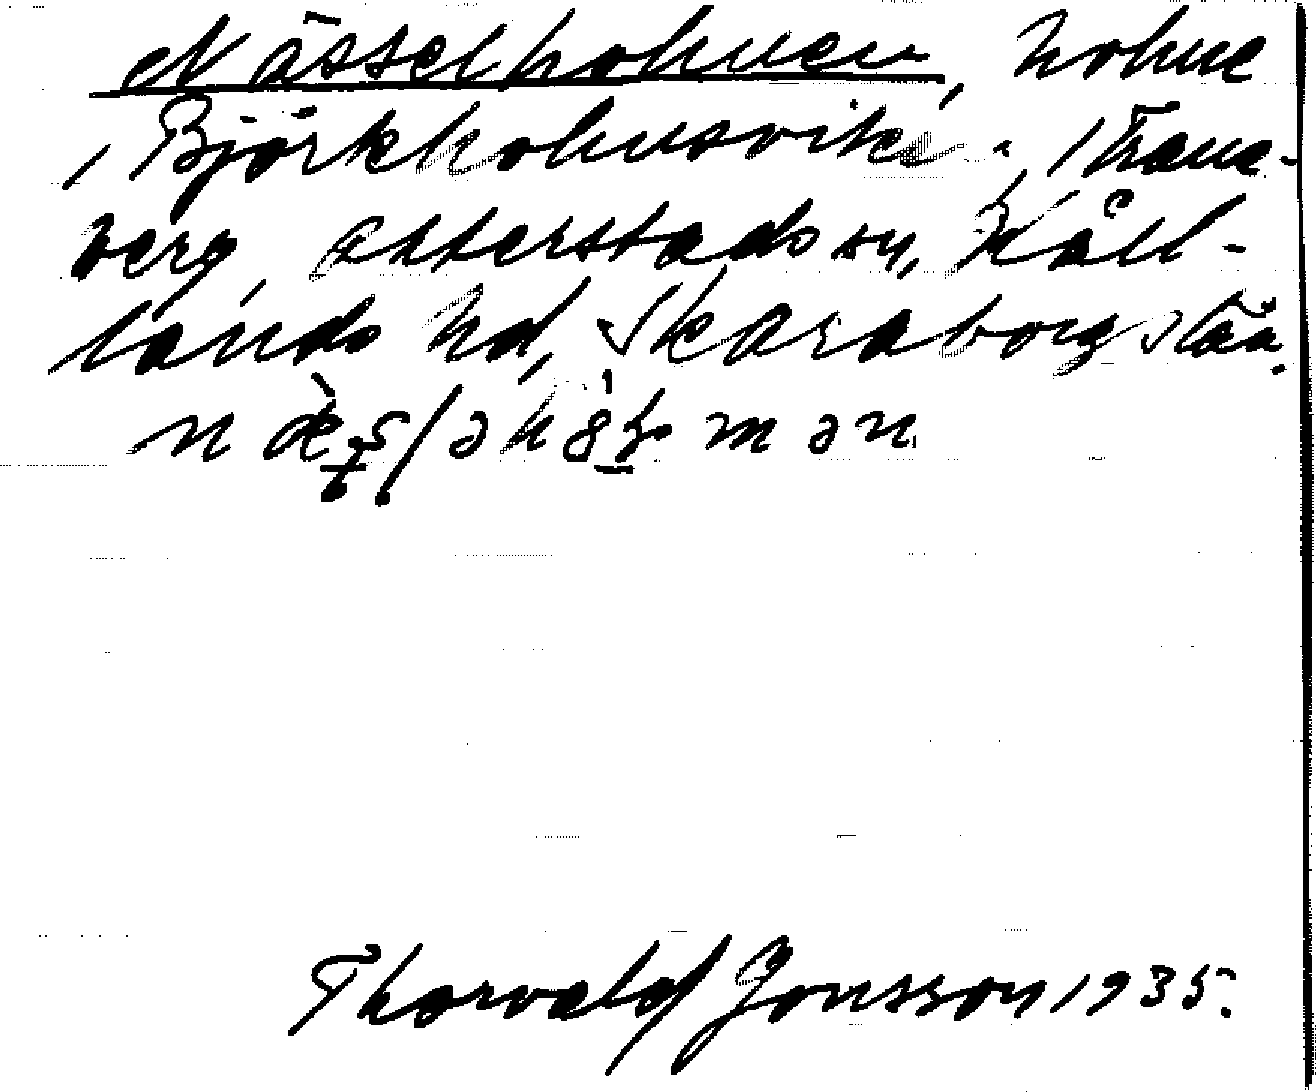 Nässelholmen, holme
i Björkholmsviken i Trane-
berg, Otterstads sn, Kål-
lands hd, Skaraborgs län.
Thorvald Jonsson 1935.